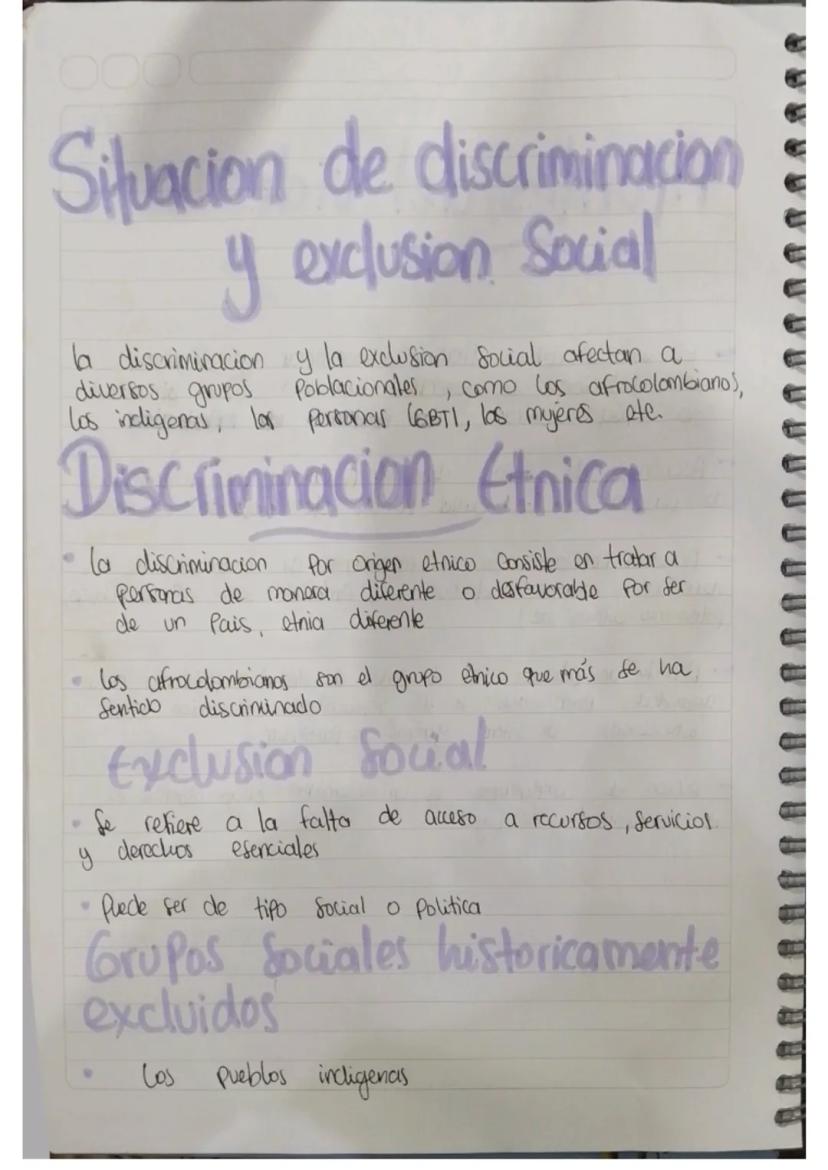 Situacion de discriminacion
y exclusion Social
la discriminacion y la exclusion social afectan a
diversos grupos poblacionales, como los afrocolombianos,
los indigenas, las personas LGBTI, las mujeres ate.
Discriminacion Etnica
• la discriminacion por origen etnico consiste en tratar a
personas de manera diferente o desfavorable por ser
de un Pais, etnia diferente
• los afrocolombianos son el grupo etnico que más se ha
sentido discriminado
Exclusion Social
• Se refiere a la falta de acceso a recursos, servicios
y derechos esenciales
• Puede ser de tipo social o politica
Grupos Sociales historicamente
excluidos
• Los pueblos indigenas